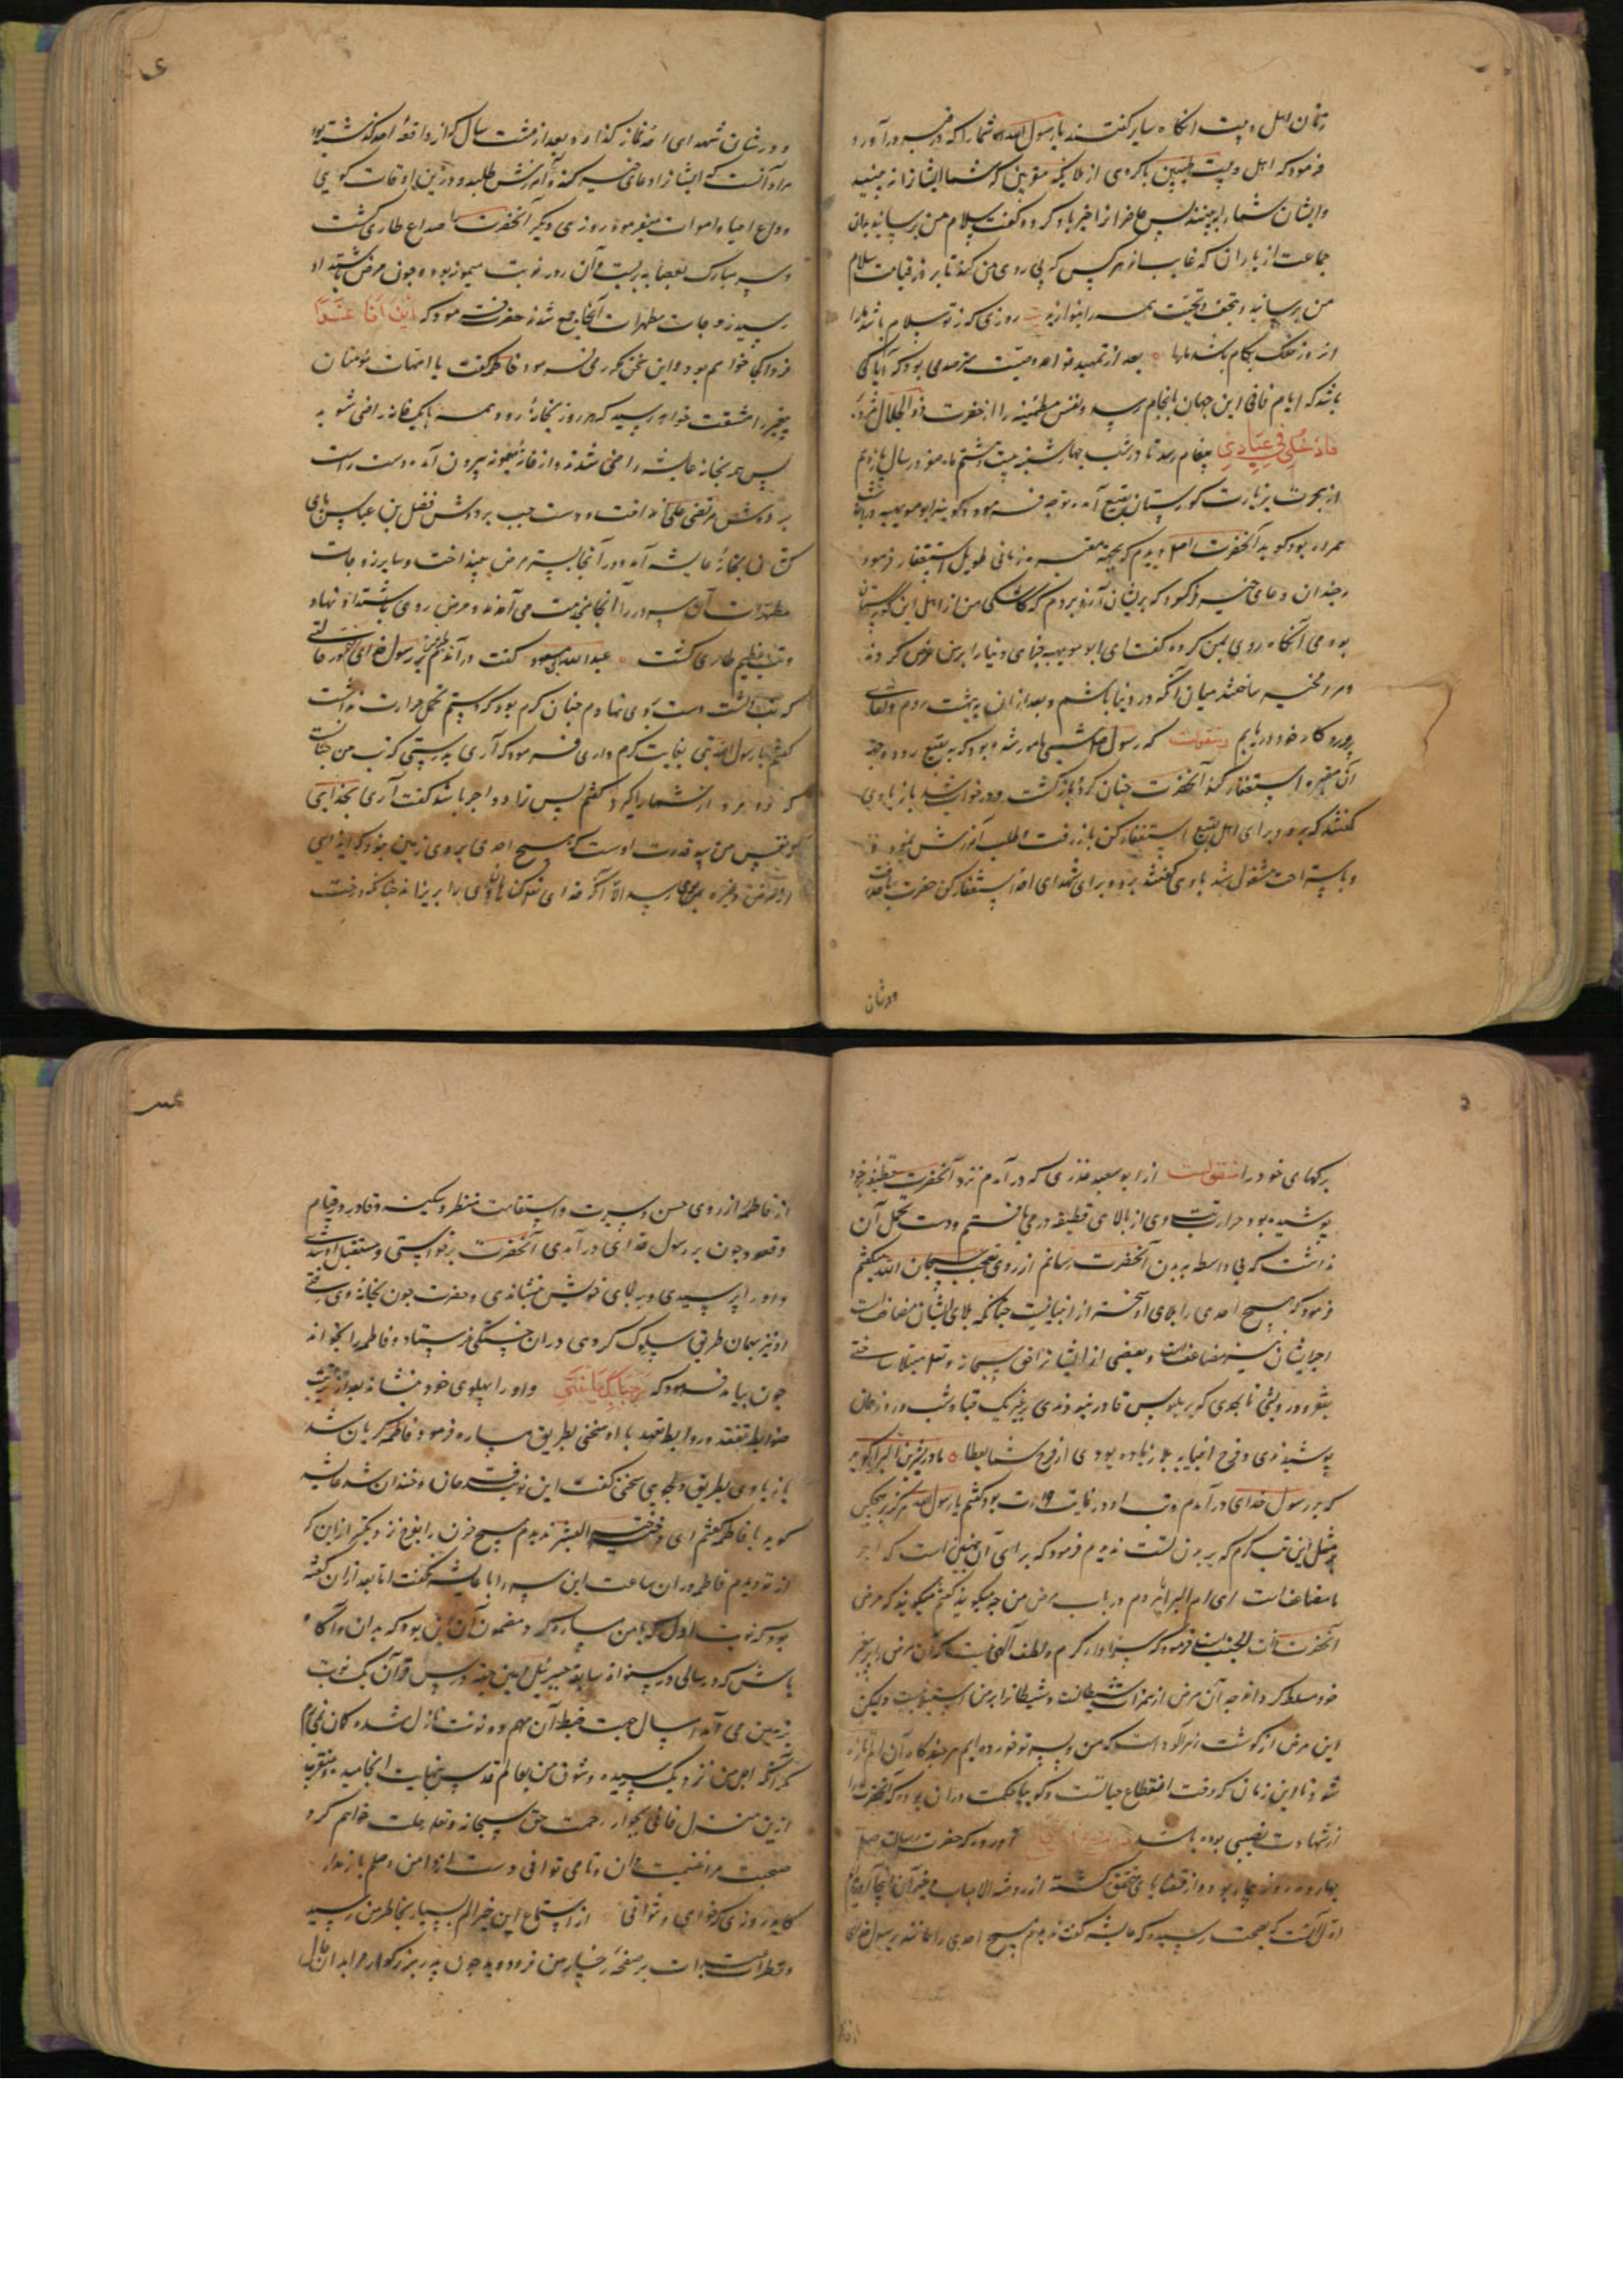 زنان اهل بیت آنگاه سایر گفتند یا رسول الله شما را که در قبر در آورد
فرمود که اهل بیت من با گروهی از ملایکه مقربین که شما ایشان را نه بینید
و ایشان شما را بینند پس حاضران را خیرباد کرد و گفت سلام من برسانید بدان
جماعت از یاران که غایب‌اند هر کس که پی روی من کند تا بروز قیامت سلام
من برسانید و بتحف و تحیت همه را بنوازید روزی که ز تو سلام باشد ما را
آن روز فلک بکام باشد ما را بعد از تمهید قواعد وصیت مترصد می بود که آیا کی
باشد که ایام فانی این جهان بانجام رسد و نفس مطمئنه را از حضرت ذو الجلال مژده
فَادْخُلِی فِی عِبَادِی پیغام رسد تا در شب چهارشنبه بیست و هشتم ماه صفر در سال یازدهم
از هجرت بزیارت گورستان بقیع آمد توجه فرمود و گویند ابو مویهبه در آنجا
همراه بود گوید آنحضرت را دیدم که بجهة مقبره زمانی طویل استغفار فرمود
و چندان دعای خیر فرمود که بر ایشان آرزو بردم که کاشکی من از اهل این گورستان
بودمی آنگاه روی بمن کرده گفت ای ابو مویهبه خزاین دنیا را بر من عرض کردند
و مرا مخیر ساختند میان آنکه در دنیا باشم و بعد از آن به بهشت روم و لقای
پروردگار خود دریابم منقولست که رسول شبی مامور شده بود که به بقیع رود و جهة
آن مقبره استغفار کند آنحضرت چنان کرد و بازگشت و در خواب شد باز با وی
گفتند که برو و برای اهل بقیع استغفار کن باز رفت و طلب آمرزش نمود و
و باستراحت مشغول شد باوی گفتند برو و برای شهدای احد استغفار کن حضرت
ودرشان
و در شان شهدای احد نماز گذارد و بعد از هشت سال که از واقعه احد گذشته بود
مراد آنست که ایشان را دعای خیر کند و آمرزش طلبد و در این اوقات گویی
وداع احیاء و اموات میفرمود روزی دیگر آنحضرت را صداع طاری گشت
و سر مبارک بعصابه بربست و آن روز نوبت میمونه بود و چون مرض باشتداد
رسید زوجات مطهرات آنجا جمع شدند حضرت فرمود که اَیْنَ اَنَا غَدًا
فردا کجا خواهم بود و این سخن مکرر می فرمود فاطمه گفت با امهات مؤمنان
پیغمبر را مشقت خواهد رسید که هر روز بخانه رود همه بیک خانه راضی شوید
پس همه بخانه عایشه راضی شدند و از خانه میمونه بیرون آمد دست راست
بر دوش مرتضی علی انداخت و دست چپ بر دوش فضل بن عباس پای
کشان بخانه عایشه آمد و در آنجا بستر مرض بینداخت و سایر زوجات
مطهرات آن سرور را آنجا بخدمت می آمدند و مرض روی باشتداد نهاد
و تب عظیم طاری گشت عبدالله بن مسعود گفت در آمدم بر رسول خدای در حالتی
که تب داشت دست بر وی نهادم چنان گرم بود که دستم تحمل حرارت نداشت
گفتم یا رسول الله تبی بغایت گرم داری فرمود که آری بدرستی که تب من چنانست
که دو مرد از شما را گیرد گفتم پس ترا دو اجر باشد گفت آری بخدایی
که نفس من بید قدرت اوست که هیچ احدی بر روی زمین نبود که ایذایی
از مرض و غیره بوی رسد الا آنکه خدای گناهان وی را بریزاند چنانکه درخت
برگهای خود را منقولست از ابو سعید خدری که در آمدم نزد آنحضرت قطیفه بر خود
پوشیده بود حرارت تب وی از بالای قطیفه در می یافتم و دست تحمل آن
نداشت که بی واسطه به بدن آنحضرت رسانم از روی تعجب سبحان الله میگفتم
فرمود که هیچ احدی را بلای او سخت تر از انبیا نیست چنانکه بلای ایشان مضاعفست
اجر ایشان نیز مضاعفست و بعضی از ایشان را حق سبحانه و تعالی مبتلا ساختی
بفقر و درویشی تا بحدی که بر ملبوس قادر نبودندی بغیر یک قبا و شب و روز همان
پوشیدندی و فرح انبیا به بلا زیاده بودی از فرح شما بعطا مادر بشر بن البراء گوید
که بر رسول خدای در آمدم و تب او در نهایت حرارت بود گفتم یا رسول الله هرگز بر هیچ کس
مثل این تب گرم که بر بدن تست ندیدم فرمود که برای آن چنین است که اجر
ما مضاعف است ای ام البراء مردم در باب مرض من چه میگویند گفتم میگویند که مرض
آنحضرت ذات الجنب است فرمود که سزاوار کرم و لطف الهی نیست که آن مرض را بر پیغمبر
خود مسلط گرداند چه آن مرض از همزات شیطانست و شیطان را بر من استیلا نیست ولیکن
این مرض از گوشت زهرآلود است که من و پسر تو خورده ایم هر چند گاه آن الم تازه
شود تا این زمان که وقت انقطاع حیاتست و گویا حکمت در آن بود که آنحضرت را
از شهادت نصیبی بوده باشد آورده که حضرت رسالت صلعم
چهارده روز بیمار بود و از قضایای متحقق گشته از روضة الاحباب
اول آنست که بصحت رسیده که عایشه گفت ندیدم هیچ احدی را مانند تر برسول خدای
از فاطمه از روی حسن و سیرت و استقامت منظر و سکینه و وقار در قیام
و قعود چون بر رسول خدای در آمدی آنحضرت برخواستی و مستقبل او شدی
و او را بپرسیدی و بر جای خویش بنشاندی و حضرت چون بخانه وی رفتی
او نیز بهمان طریق سلوک کردی در آن خستگی فرستاد و فاطمه را بخواند
چون بیامد فرمود که مَرْحَبًا بِکِ یَا بِنْتِی و او را بپهلوی خود بنشاند بعد از ترتیب
ضوابط تفقد و روابط تعهد با او سخنی بطریق مساره فرمود فاطمه گریان شد
باز با وی بطریق دلجویی سخنی گفت این نوبت فرحان و خندان شد عایشه
گوید با فاطمه گفتم ای خیر البشر ندیدم هیچ حزن را بفرح نزدیکتر از این که
از تو دیدم فاطمه در آن ساعت این سر را با عایشه نگفت اما بعد از آن گفته
بود که نوبت اول که با من مساره کرد مضمون آن این بود که بدان و آگاه
باش که در سالی در سنوات سابقه جبرئیل امین جهة درس قرآن یک نوبت
بزمین می آمد امسال جهت ضبط آن مهم دو نوبت نازل شده گمان نمی برم
مگر آنکه اجل من نزدیک رسیده و شوق من بعالم قدس بنهایت انجامیده و عنقریب
ازین منزل فانی بجوار رحمت حق سبحانه و تعالی رحلت خواهم کرد
صحبت مرا غنیمت دان و تا می توانی دست از دامن وصلم باز مدار
کاید روزی که خواهی و نتوانی از استماع این خبر الم بسیار بخاطر من رسید
و قطرات عبرات بر صفحه رخسار من فرو دوید چون پدر بزرگوار مرا بدان حال